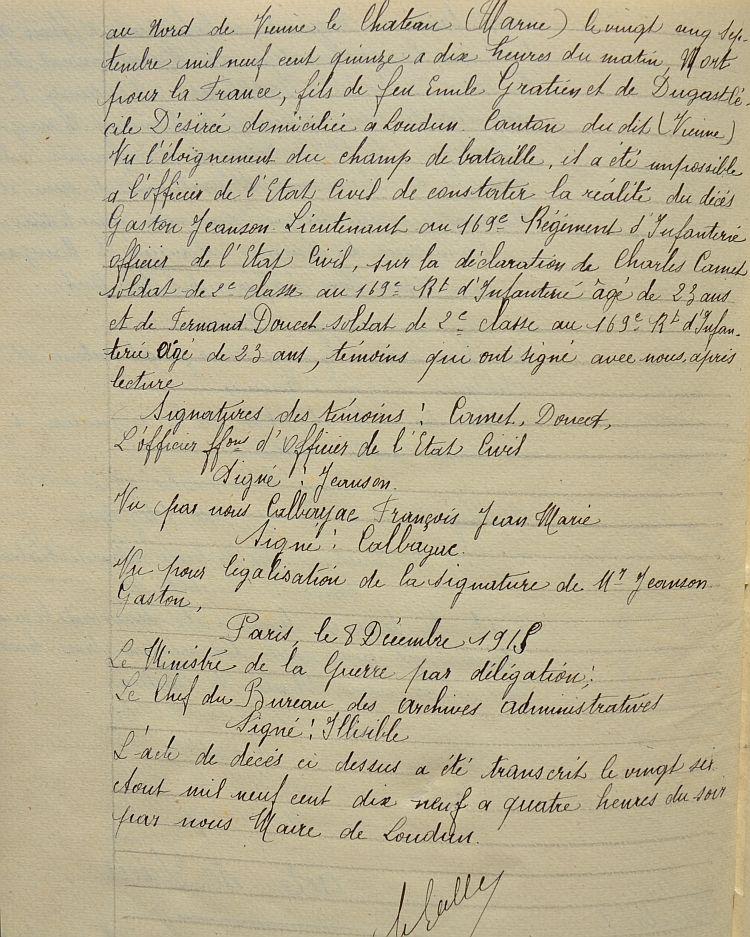 au Nord de Vienne le Chateau (Marne) le vingt cinq sep-
tembre mil neuf cent quinze a dix heures du matin, Mort
pour la France, fils de feu Emile Gratien et de Dugast Cé-
cile Désirée domiciliée a Loudun. Canton du dit (Vienne)
Vu l'éloignement du champ de bataille, il a été impossible
a l'officier de l'Etat Civil de constater la réalité du décés
Gaston Jeanson Lieutenant au 169e Régiment d'Infanterie
officier de l'Etat Civil, sur la déclaration de Charles Camet
soldat de 2e classe au 169e Rt d'Infanterie âgé de 23 ans
et de Fernand Doucet soldat de 2e classe au 169e Rt d'Infan-
terie âgé de 23 ans, témoins qui ont signé avec nous, après
lecture
Signatures des témoins: Camet, Doucet,
L'officier ffons d'Officier de l'Etat Civil
Signé: Jeanson.
Vu par nous Calbayac François Jean Marie
Signé: Calbayac.
Vu pour légalisation de la signature de Mr Jeanson
Gaston,
Paris, le 8 Décembre 1915
Le Ministre de la Guerre par délégation:
Le Chef du Bureau des archives administratives
Signé: Illisible
L'acte de décés ci dessus a été transcrit le vingt six
Aout mil neuf cent dix neuf a quatre heures du soir
par nous Maire de Loudun.